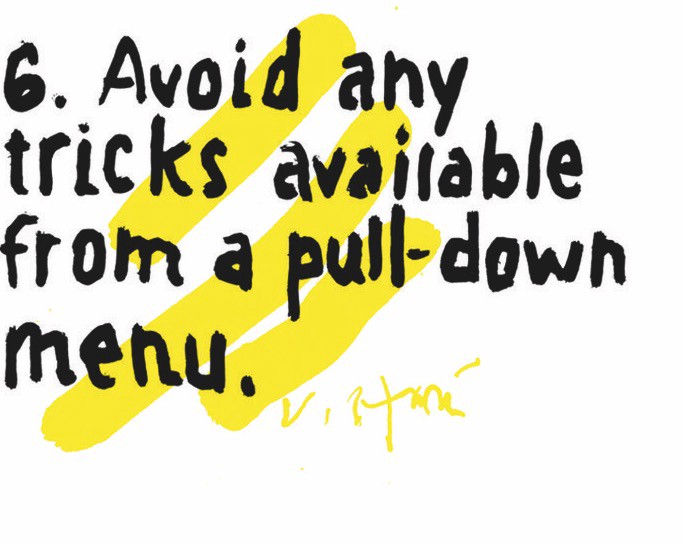 6. Avoid any
tricks available
from a pull-down
menu.